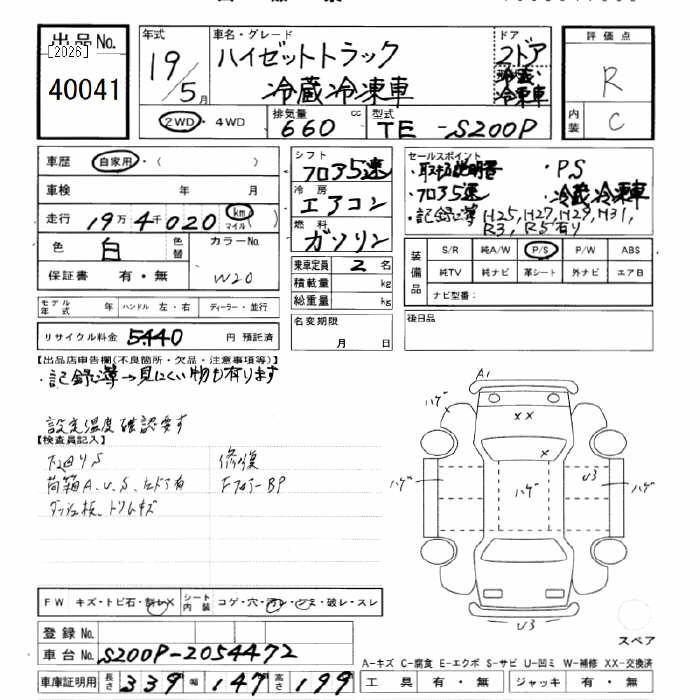 出品No.
[2026]
40041
年式
19/5月
車名・グレード
ハイゼットトラック
冷蔵冷凍車
ドア
2ドア
冷蔵冷凍車
2WD・4WD
排気量
660 cc
型式
TE-S200P
評価点
R
内装
C
車歴 自家用・( )
車検 年 月
走行 19万4千020 km マイル
色 白 色替
カラーNo.
W20
保証書 有・無
モデル年式 年 ハンドル 左・右 ディーラー・並行
リサイクル料金 5440 円 預託済
シフト
フロア5速
冷房
エアコン
燃料
ガソリン
乗車定員 2 名
積載量 kg
総重量 kg
名変期限
月 日
セールスポイント
・取扱説明書 ・PS
・フロア5速 ・冷蔵冷凍車
・記録簿 H25,H27,H29,H31,
R3,R5有り
装備品
S/R 純A/W P/S P/W ABS
純TV 純ナビ 革シート 外ナビ エアB
ナビ型番:
後日品
【出品店申告欄(不良箇所・欠品・注意事項等)】
・記録簿→見にくい物も有ります
設定温度確認要す
【検査員記入】
下廻りS
荷箱A、U、S、
ダッシュ板、トリムキズ
修復
FフロアーBP
A1
ハゲ
XX
X
ハゲ
ハゲ
U3
ハゲ
U3
スペア
FW キズ・トビ石・割レX
シート内装 コゲ・穴・汚レ・シミ・破レ・スレ
登録No.
車台No. S200P-2054472
車庫証明用 長さ 339 幅 147 高さ 199
A-キズ C-腐食 E-エクボ S-サビ U-凹ミ W-補修 XX-交換済
工具 有・無 ジャッキ 有・無